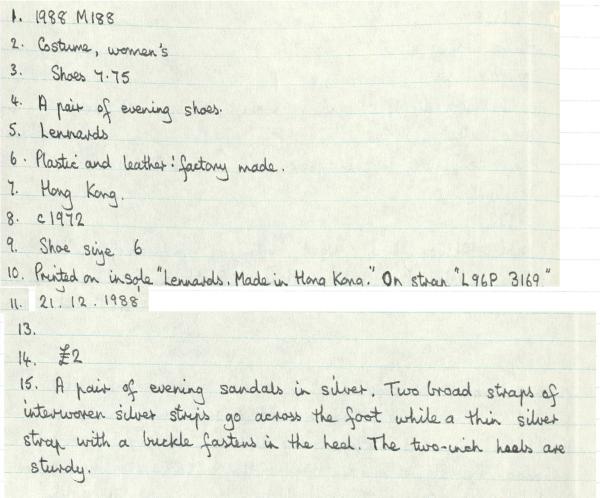 1. 1988 M188
2. Costume, women's
3. Shoes 7.75
4. A pair of evening shoes.
5. Lennards
6. Plastic and leather: factory made.
7. Hong Kong.
8. c1972
9. Shoe size 6
10. Printed on insole "Lennards. Made in Hong Kong." On strap "L96P 3169."
11. 21.12.1988
13.
14. £2
15. A pair of evening sandals in silver. Two broad straps of
interwoven silver strips go across the foot while a thin silver
strap with a buckle fastens in the heel. The two-inch heels are
sturdy.